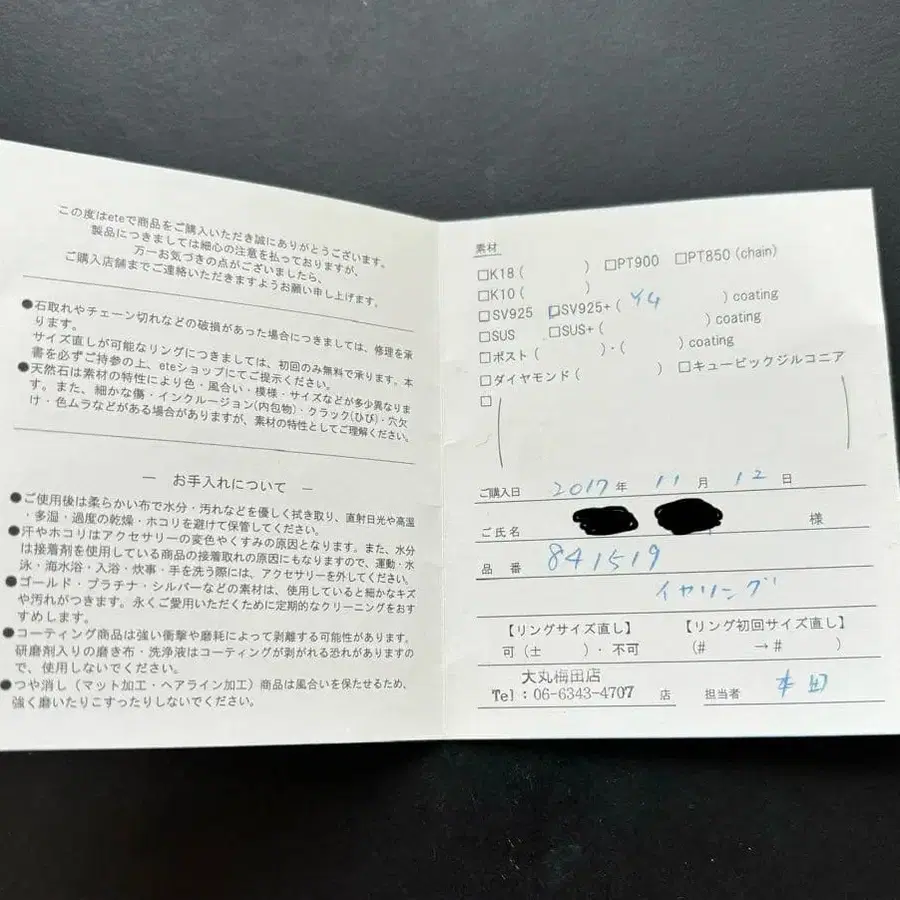 この度はeteで商品をご購入いただき誠にありがとうございます。
製品につきましては細心の注意を払っておりますが、
万一お気づきの点がございましたら、
ご購入店舗までご連絡いただきますようお願い申し上げます。
●石取れやチェーン切れなどの破損があった場合につきましては、修理を承
ります。
サイズ直しが可能なリングにつきましては、初回のみ無料で承ります。本
書を必ずご持参の上、eteショップにてご提示ください。
●天然石は素材の特性により色・風合い・模様・サイズなどが多少異なりま
す。また、細かな傷・インクルージョン(内包物)・クラック(ひび)・穴欠
け・色ムラなどがある場合がありますが、素材の特性としてご理解ください。
― お手入れについて ―
●ご使用後は柔らかい布で水分・汚れなどを優しく拭き取り、直射日光や高温
・多湿・過度の乾燥・ホコリを避けて保管してください。
●汗やホコリはアクセサリーの変色やくすみの原因となります。また、水分
は接着剤を使用している商品の接着取れの原因にもなりますので、運動・水
泳・海水浴・入浴・炊事・手を洗う際には、アクセサリーを外してください。
●ゴールド・プラチナ・シルバーなどの素材は、使用していると細かなキズ
や汚れがつきます。永くご愛用いただくために定期的なクリーニングをおす
すめします。
●コーティング商品は強い衝撃や磨耗によって剥離する可能性があります。
研磨剤入りの磨き布・洗浄液はコーティングが剥がれる恐れがありますの
で、使用しないでください。
●つや消し（マット加工・ヘアライン加工）商品は風合いを保たせるため、
強く磨いたりこすったりしないでください。
素材
□K18 ( ) □PT900 □PT850 (chain)
□K10 ( )
□SV925 □SV925+ ( Y4 ) coating
□SUS □SUS+ ( ) coating
□ポスト ( )・( ) coating
□ダイヤモンド ( ) □キュービックジルコニア
□ ( )
ご購入日 2017 年 11 月 12 日
ご氏名 様
品 番 841519
イヤリング
【リングサイズ直し】 【リング初回サイズ直し】
可 (± )・不可 (# →# )
大丸梅田店
Tel：06-6343-4707 店 担当者 本田